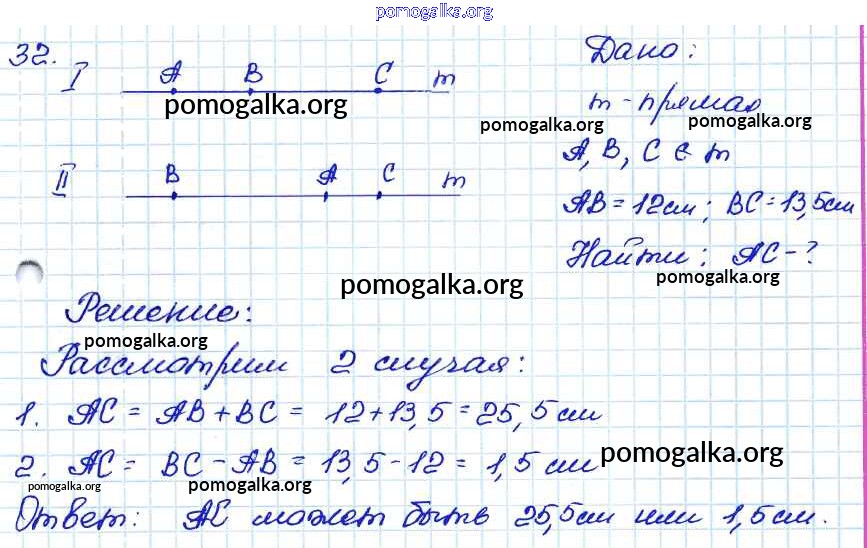 pomogalka.org
32.
I A B C m
pomogalka.org
II B A C m
Дано:
m - прямая
pomogalka.org pomogalka.org
A, B, C ∈ m
AB = 12 см; BC = 13,5 см
Найти: AC - ?
pomogalka.org
pomogalka.org
Решение:
pomogalka.org
Рассмотрим 2 случая:
1. AC = AB + BC = 12 + 13,5 = 25,5 см
2. AC = BC - AB = 13,5 - 12 = 1,5 см
pomogalka.org
pomogalka.org pomogalka.org
Ответ: AC может быть 25,5 см или 1,5 см.